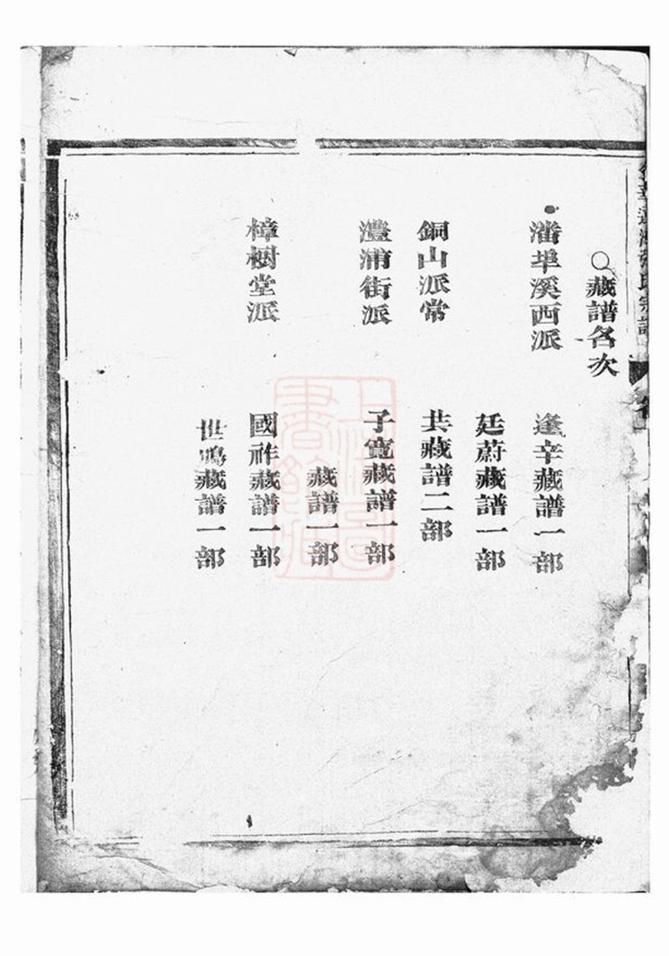 ○藏譜名次
潘埠溪西派 逢辛藏譜一部
廷蔚藏譜一部
銅山派常 共藏譜二部
澧浦街派 子寬藏譜一部
藏譜一部
樟樹堂派 國祚藏譜一部
世鳴藏譜一部